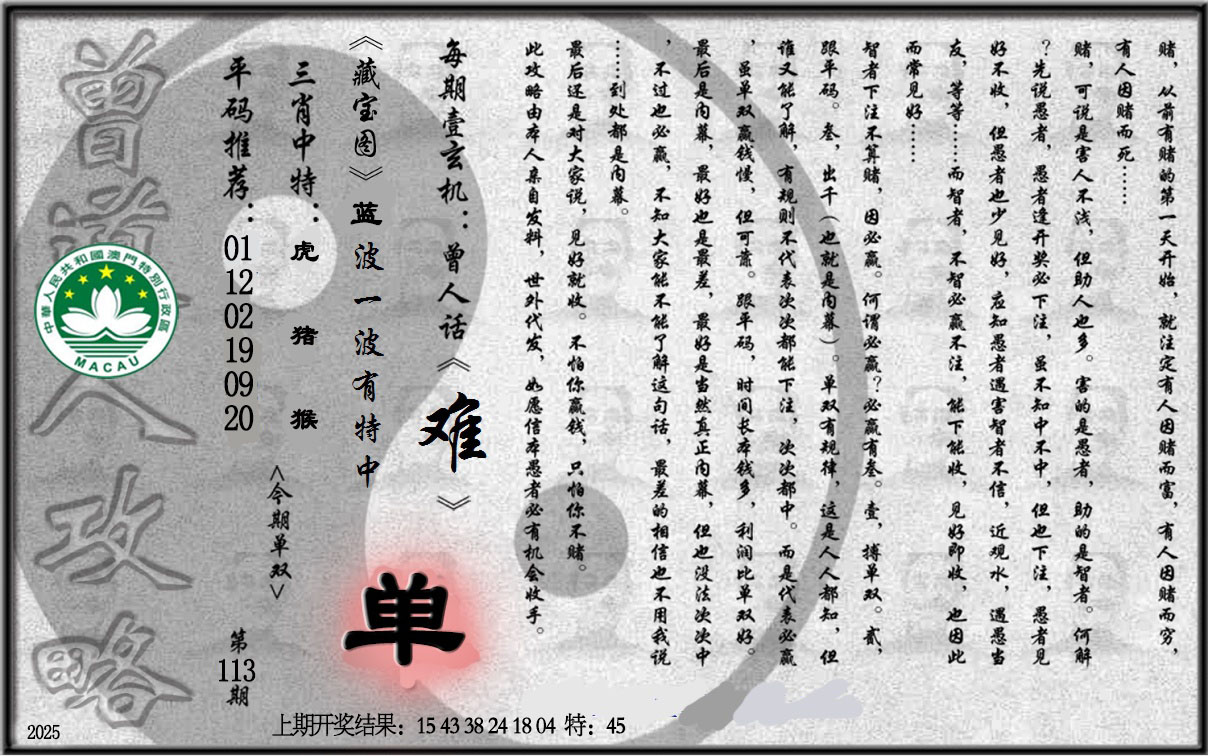 赌，从前有赌的第一天开始，就注定有人因赌而富，有人因赌而穷，
有人因赌而死……
赌，可说是害人不浅，但助人也多。害的是愚者，助的是智者。何解
？先说愚者，愚者逢开奖必下注，虽不知中不中，但也下注，愚者见
好不收，但愚者也少见好，应知愚者遇害智者不信，近观水，遇愚当
友，等等……而智者，不智必赢不注，能下能收，见好即收，也因此
而常见好……
智者下注不算赌，因必赢。何谓必赢？必赢有叁。壹，搏单双。贰，
跟平码。叁，出千（也就是内幕）。单双有规律，这是人人都知，但
谁又能了解，有规则不代表次次都能下注，次次都中。而是代表必赢
，虽单双赢钱慢，但可靠。跟平码，时间长本钱多，利润比单双好。
最后是内幕，最好也是最差，最好是当然真正内幕，但也没法次次中
，不过也必赢，不知大家能不能了解这句话，最差的相信也不用我说
……到处都是内幕。
最后还是对大家说，见好就收。不怕你赢钱，只怕你不赌。
此攻略由本人亲自发料，世外代发，如愿信本愚者必有机会收手。
每期壹玄机：曾人话《难》
《藏宝图》蓝波一波有特中
单
三肖中特：虎 猪 猴
<今期单双>
平码推荐：01 12 02 19 09 20
第113期
曾道人攻略
中華人民共和國澳門特別行政區
MACAU
上期开奖结果：15 43 38 24 18 04 特：45
2025